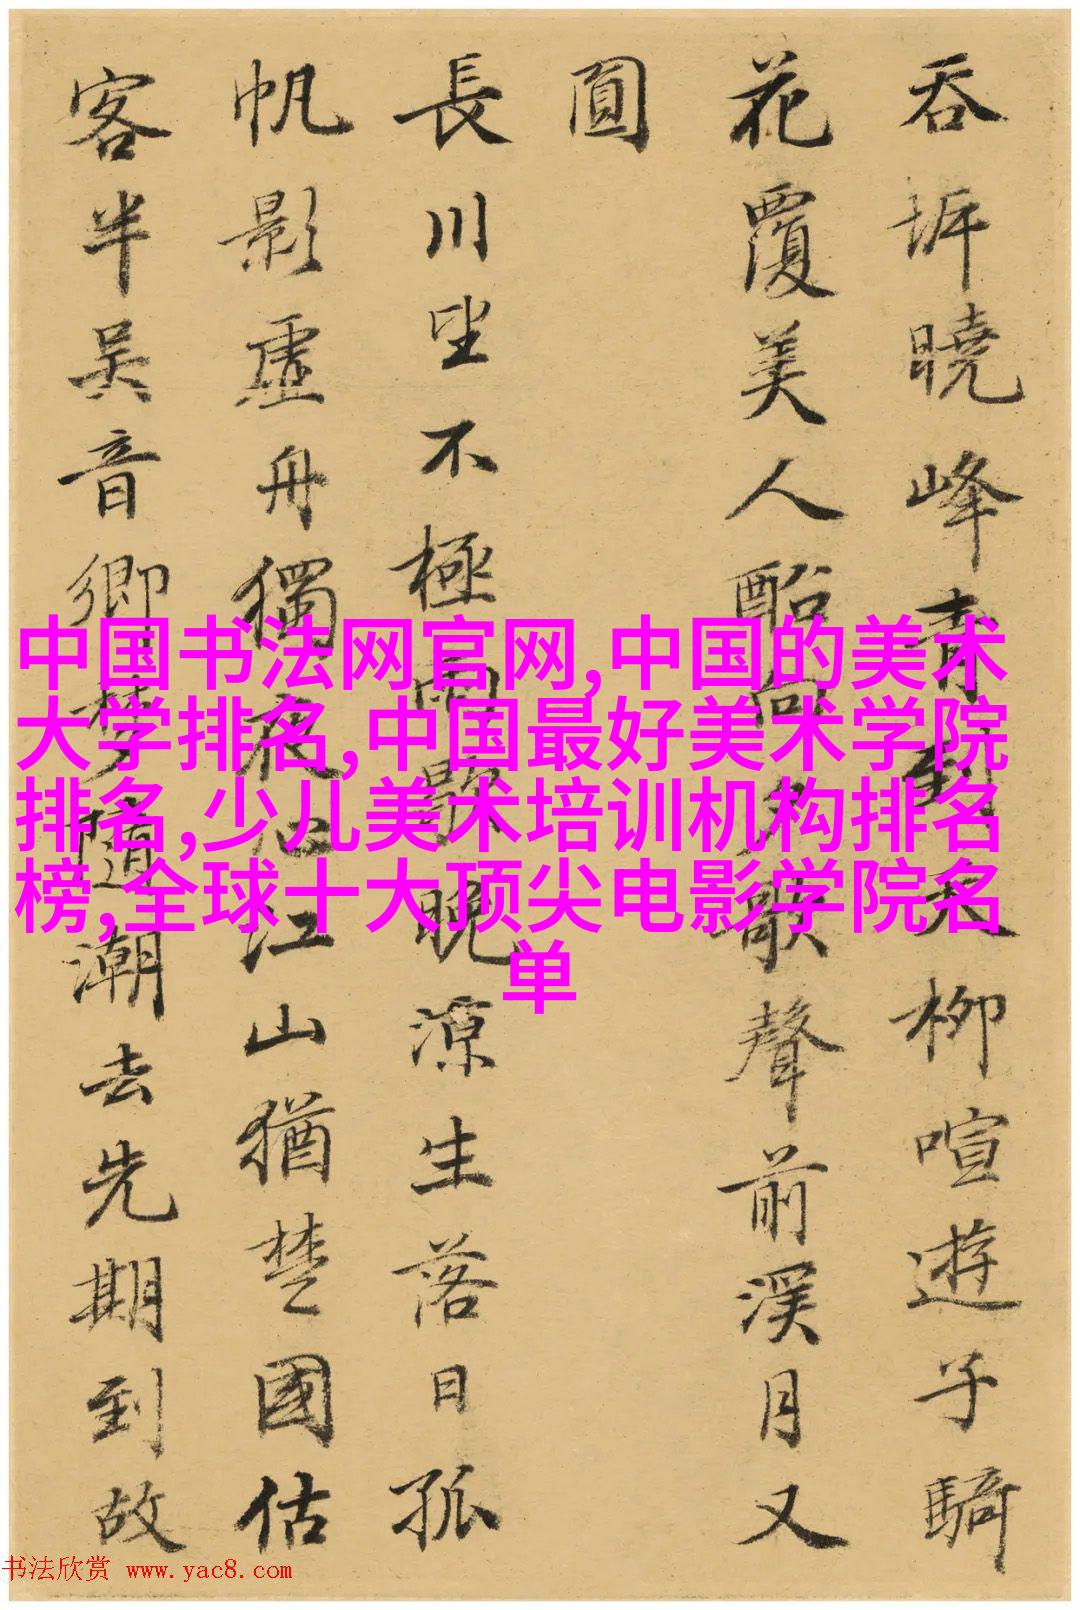 吞坼曉峰青到天柳喧遊子騎
花覆美人船向夕歌聲前溪月又
圓
長川坐不極雨歇晚涼生落日孤
帆影虛舟獨夜心江山猶楚國估
客半吳音鄉夢隨潮去先期到故
中国书法网官网,中国的美术
大学排名,中国最好美术学院
排名,少儿美术培训机构排名
榜,全球十大顶尖电影学院名
单
书法欣赏 www.yac8.com